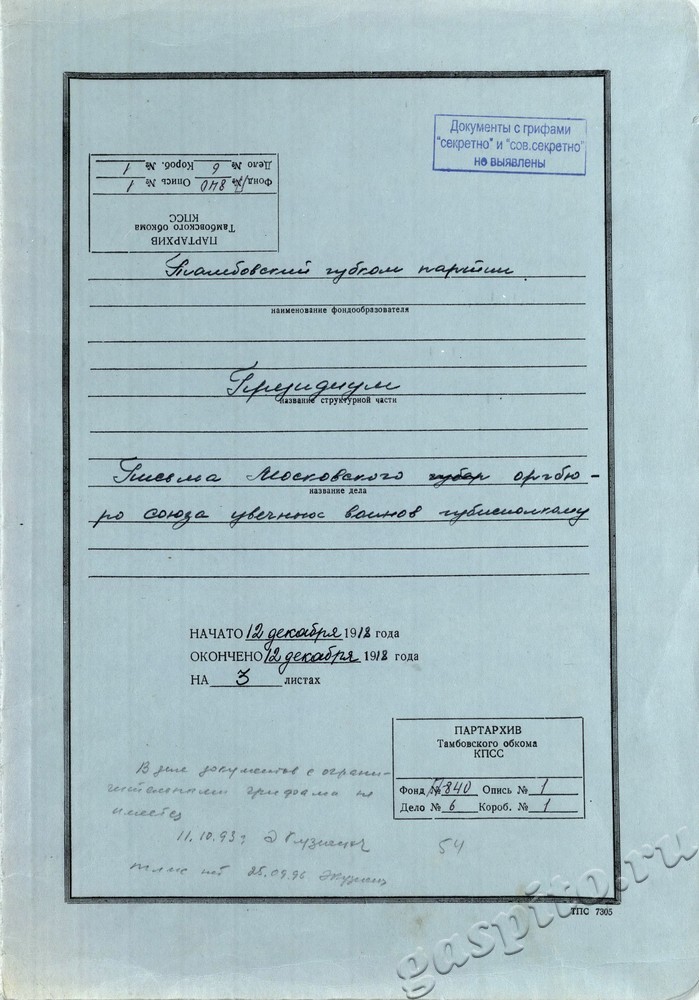 Документы с грифами
"секретно" и "сов.секретно"
не выявлены
ПАРТАРХИВ
Тамбовского обкома
КПСС
Фонд № П840 Опись № 1
Дело № 6 Короб. № 1
Тамбовский губком партии
наименование фондообразователя
Президиум
название структурной части
Письма Московского оргбю-
название дела
ро союза увечных воинов губисполкому
НАЧАТО 12 декабря 1918 года
ОКОНЧЕНО 12 декабря 1918 года
НА 3 листах
ПАРТАРХИВ
Тамбовского обкома
КПСС
Фонд № П840 Опись № 1
Дело № 6 Короб. № 1
В деле документов с ограни-
чительными грифами не
имеется
11.10.93г
54
25.09.96.
ТПС 7305
gaspito.ru